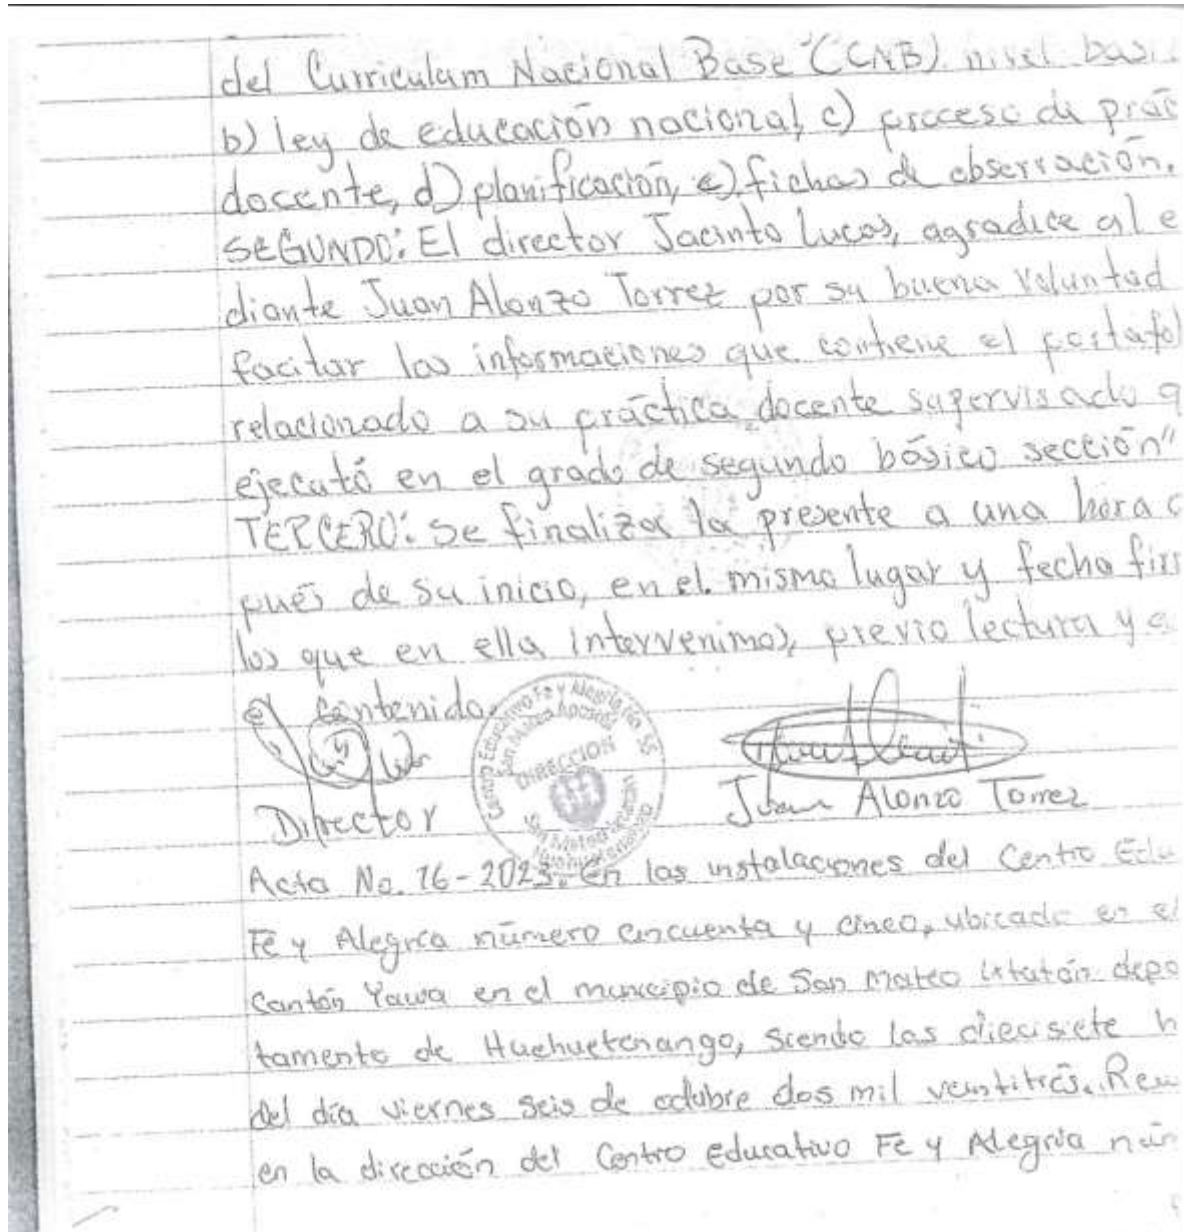 del Curriculam Nacional Base (CNB) nivel basi
b) ley de educación nacional, c) proceso de prác
docente, d) planificación, e) fichas de observación.
SEGUNDO: El director Jacinto Lucas, agradice al e
diante Juan Alonzo Torrez por su buena voluntad
facitar las informaciones que contiene el portafol
relacionado a su práctica docente supervisado q
ejecutó en el grado de segundo básico sección"
TERCERO: se finaliza la presente a una hora d
pués de su inicio, en el mismo lugar y fecha firm
los que en ella intervenimos, previo lectura y a
el contenido.
Centro Educativo Fe y Alegría No. 55
San Mateo Apostol
DIRECCION
San Mateo Ixtatan
Huehuetenango
Director
Juan Alonzo Torrez
Acta No. 16-2023. en las instalaciones del Centro Edu
Fe y Alegría número cincuenta y cinco, ubicado en el
Cantón Yawa en el municipio de San Mateo Ixtatán depa
tamento de Huehuetenango, siendo las diecisiete h
del día viernes seis de octubre dos mil veintitrés. Reu
en la dirección del Centro educativo Fe y Alegría núm